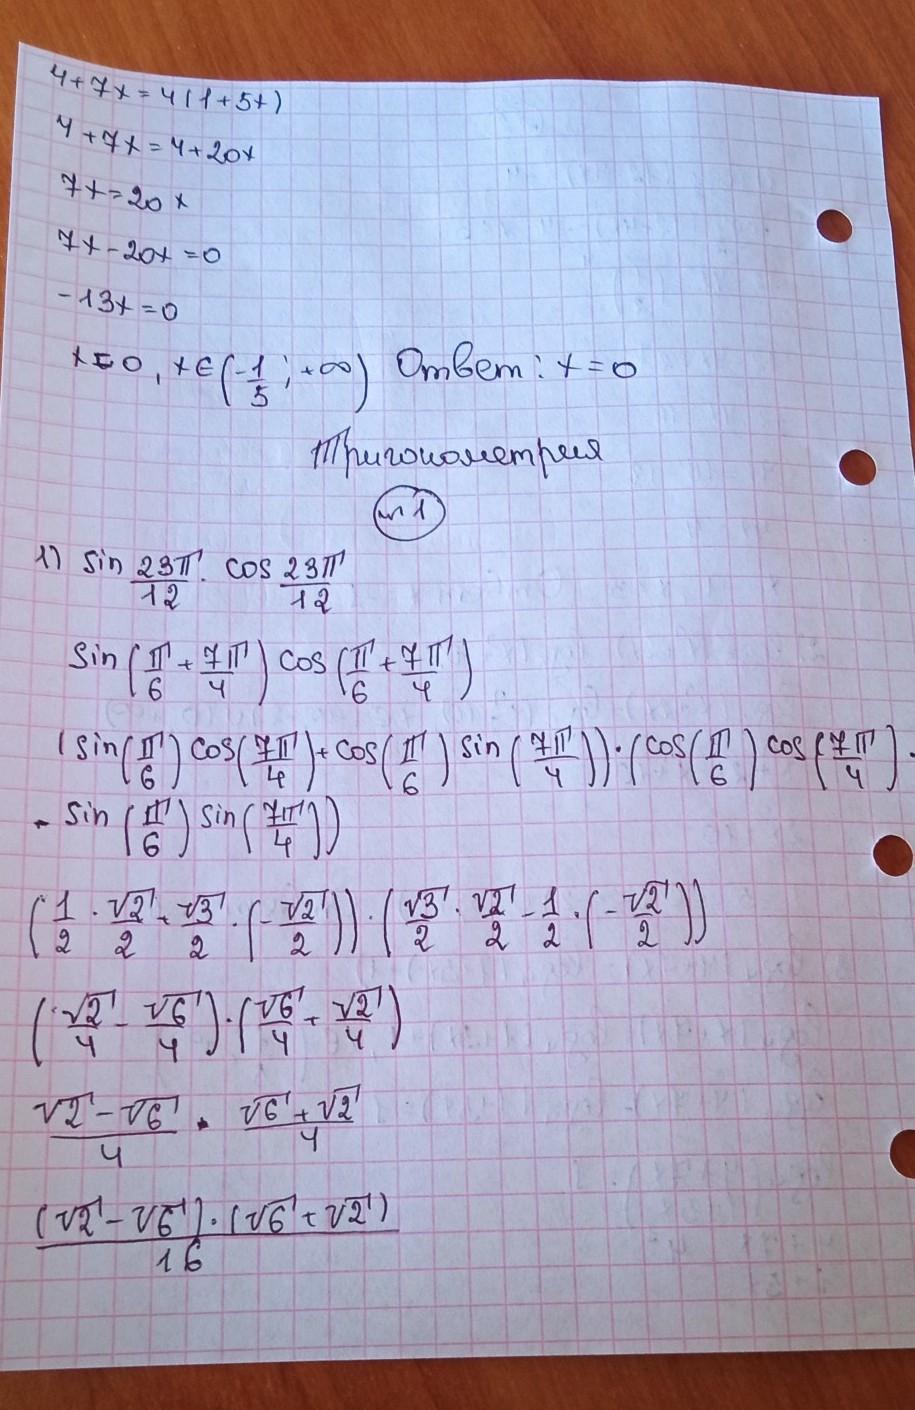 4+7x=4(1+5x)
4+7x=4+20x
7x=20x
7x-20x=0
-13x=0
x=0, x∈(-1/5; +∞) Ответ: x=0
Тригонометрия
№1
1) sin 23π/12 · cos 23π/12
sin(π/6 + 7π/4) cos(π/6 + 7π/4)
(sin(π/6) cos(7π/4) + cos(π/6) sin(7π/4)) · (cos(π/6) cos(7π/4) -
- sin(π/6) sin(7π/4))
(1/2 · √2/2 + √3/2 · (-√2/2)) · (√3/2 · √2/2 - 1/2 · (-√2/2))
(√2/4 - √6/4) · (√6/4 + √2/4)
√2-√6/4 · √6+√2/4
(√2-√6) · (√6+√2)/16